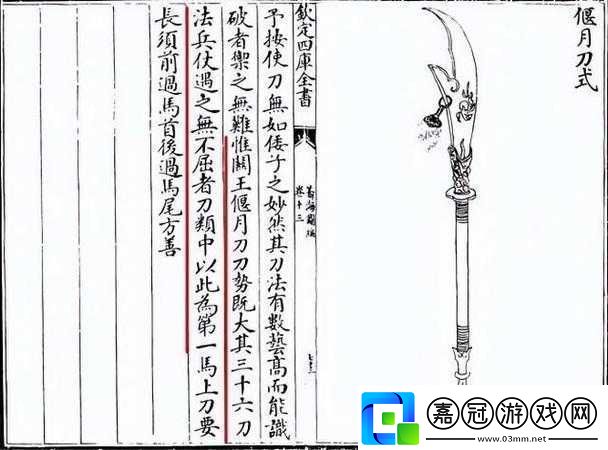 偃月刀式
欽定四庫全書
籌海圖編
卷十三
予按使刀無如倭子之妙然其刀法有數藝髙而能識
破者禦之無難惟關王偃月刀刀勢既大其三十六刀
法兵仗遇之無不屈者刀類中以此為第一馬上刀要
長須前過馬首後過馬尾方善
嘉冠游戏网
www.03mm.net